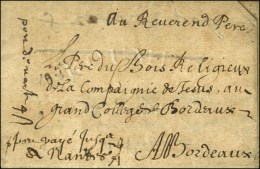 Au Reverend Pere
Le Pere du Bois Religieux
de La Compaignie de Jesus, au
grand College de Bordeaux
ABordeaux
port payé jusqu
a Nantes